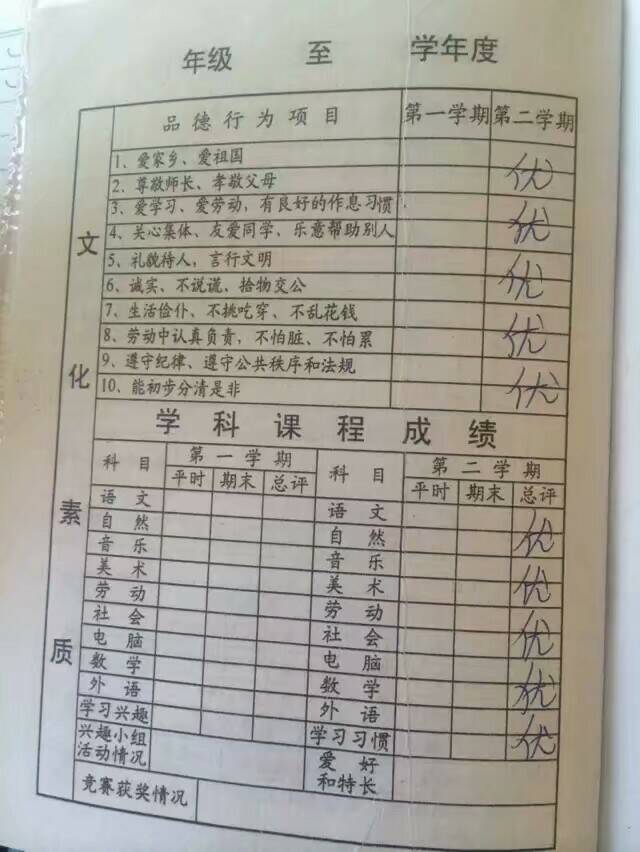 年级 至 学年度
品德行为项目 第一学期 第二学期
1、爱家乡、爱祖国
2、尊敬师长、孝敬父母 优
3、爱学习、爱劳动，有良好的作息习惯
4、关心集体、友爱同学、乐意帮助别人 优
5、礼貌待人，言行文明
6、诚实、不说谎，拾物交公 优
7、生活俭仆、不挑吃穿、不乱花钱
8、劳动中认真负责，不怕脏、不怕累 优
9、遵守纪律、遵守公共秩序和法规
10、能初步分清是非 优
文化素质
学科课程成绩
科目 第一学期 科目 第二学期
平时 期末 总评 平时 期末 总评
语文 语文
自然 自然 优
音乐 音乐
美术 美术 优
劳动 劳动
社会 社会 优
电脑 电脑
数学 数学 优
外语 外语
学习兴趣 学习习惯 优
兴趣小组 爱好
活动情况 和特长
竞赛获奖情况